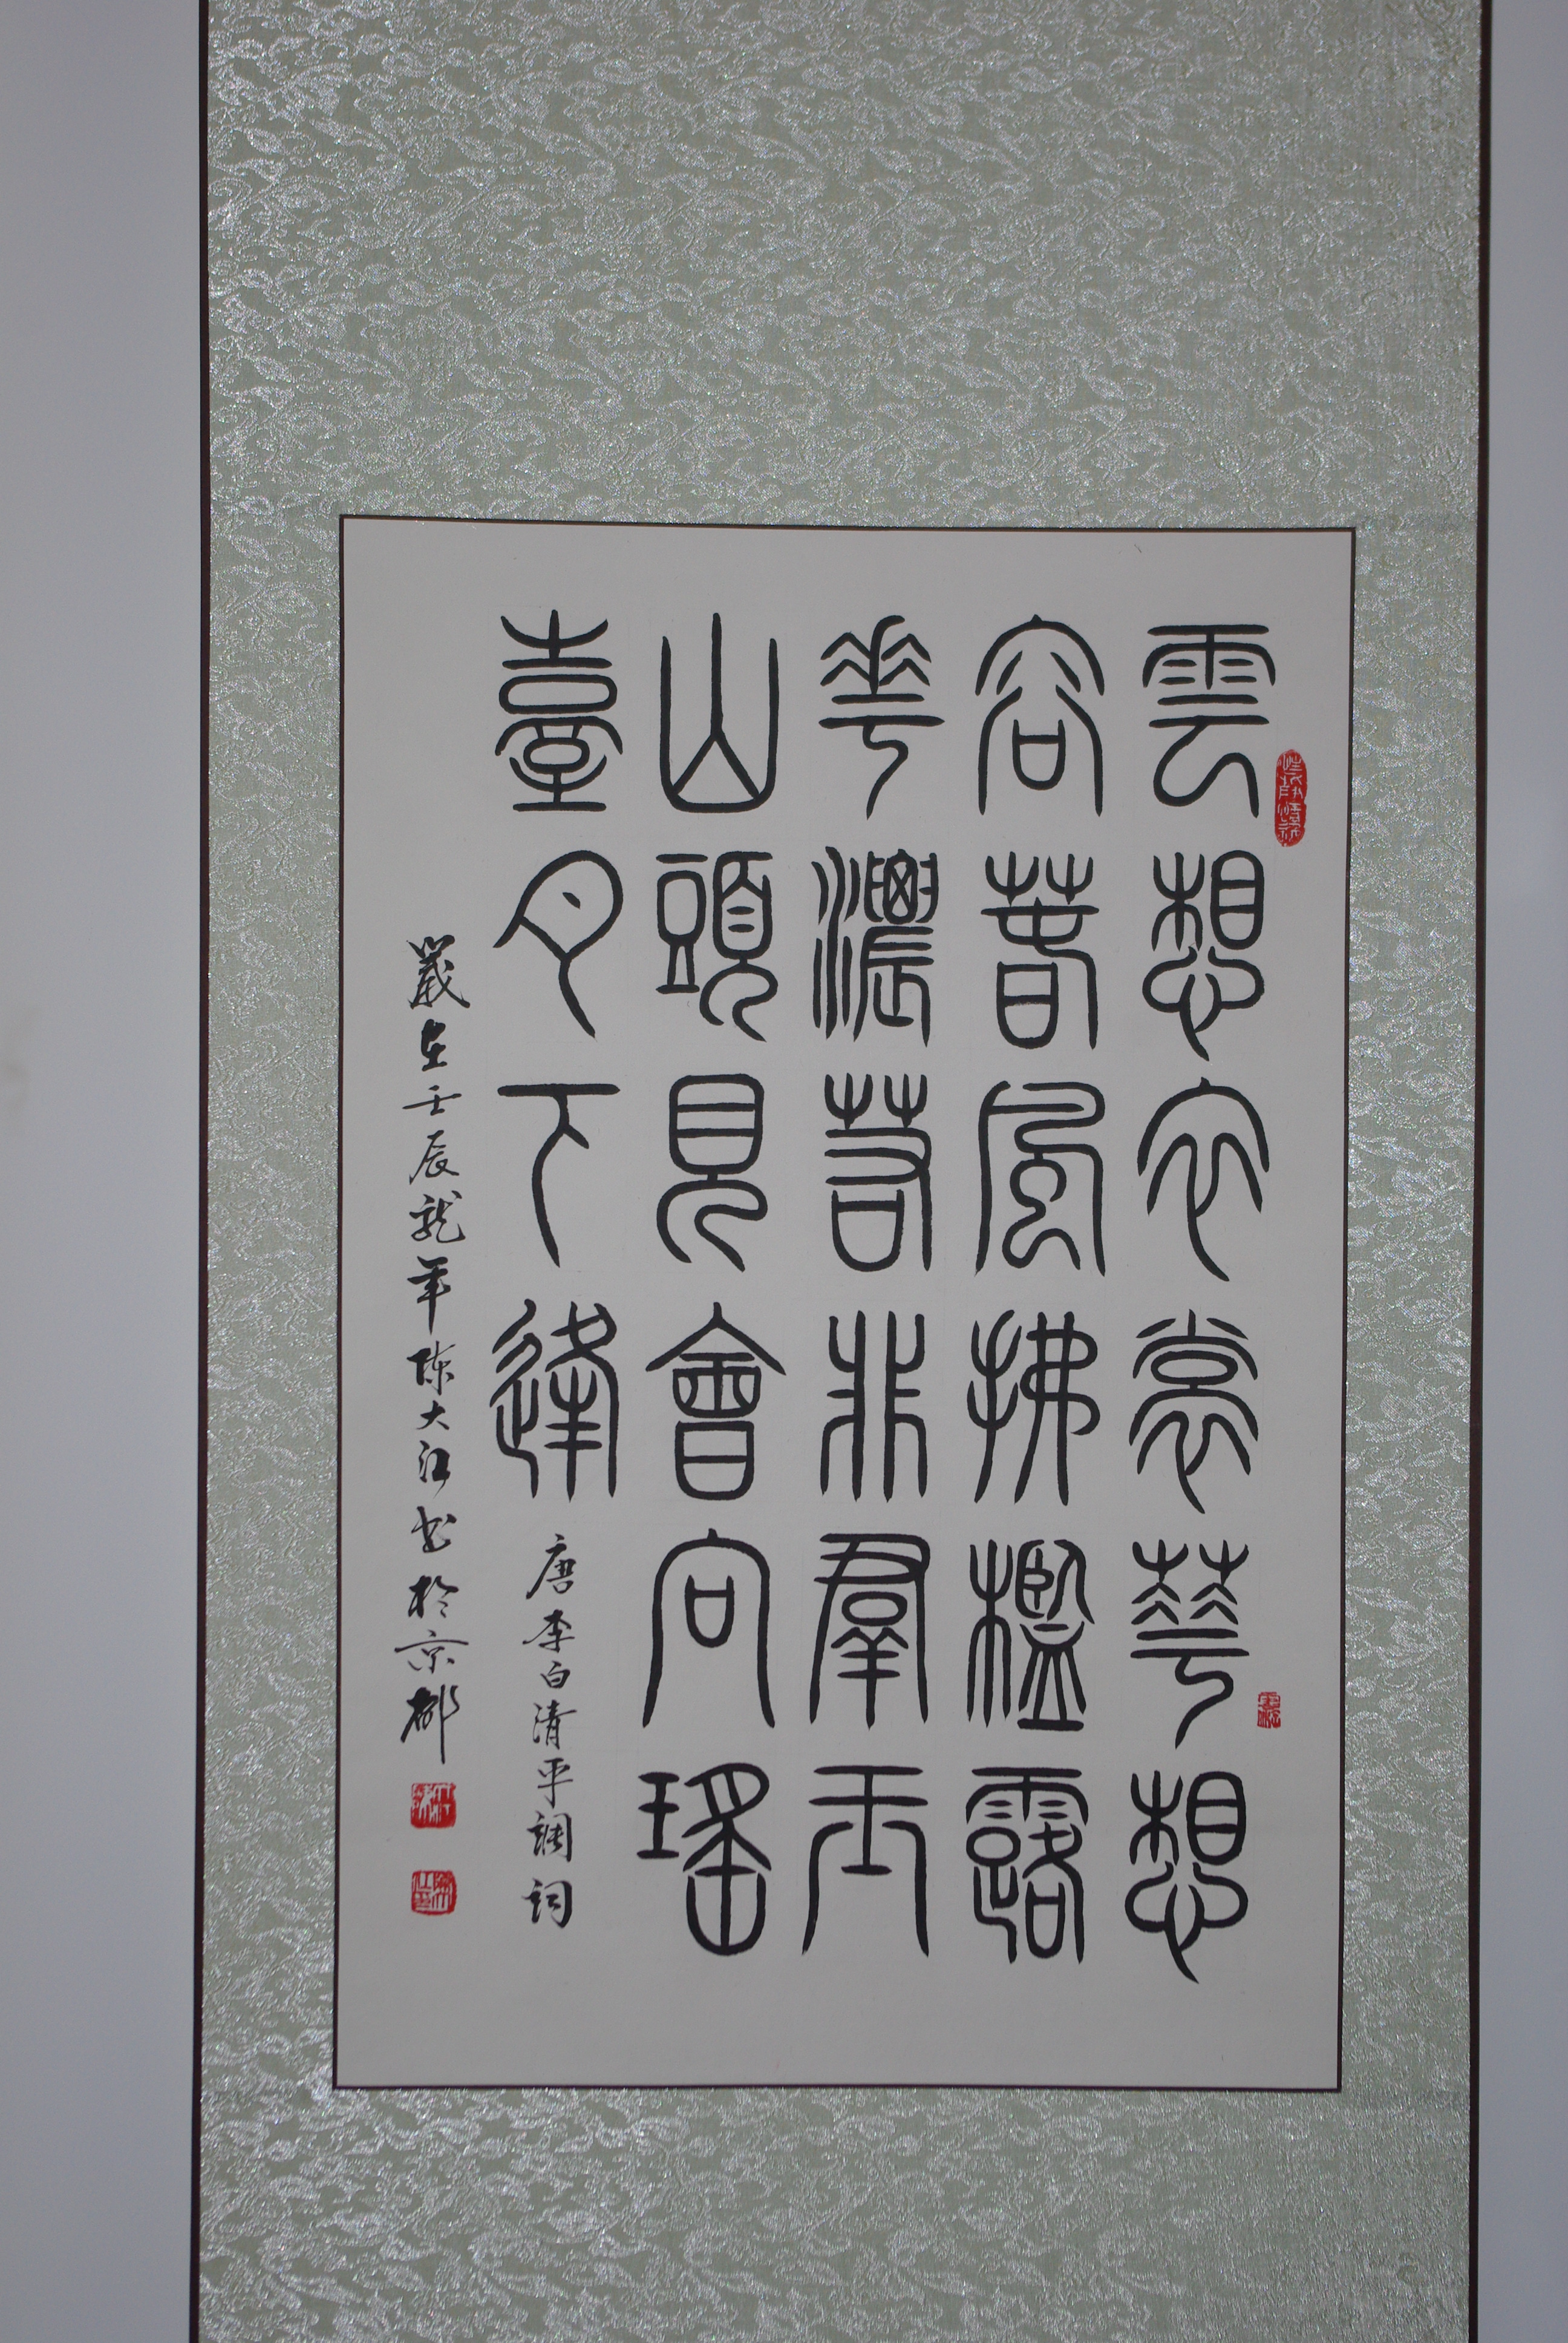 雲想衣裳華想
容春風拂檻露
華濃若非羣玉
山頭見會向瑤
臺月下逢
唐李白清平調詞
歲在壬辰龍年陳大江書於京都